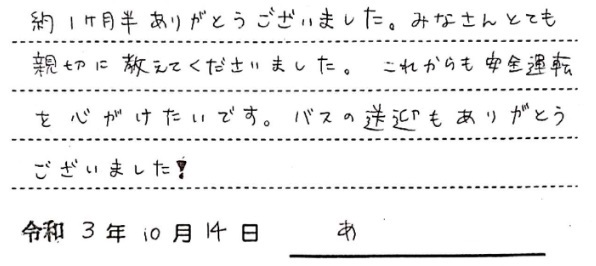 約1ヶ月半ありがとうございました。みなさんとても
親切に教えてくださいました。これからも安全運転
を心がけたいです。バスの送迎もありがとう
ございました!
令和 3 年 10 月 14 日 あ